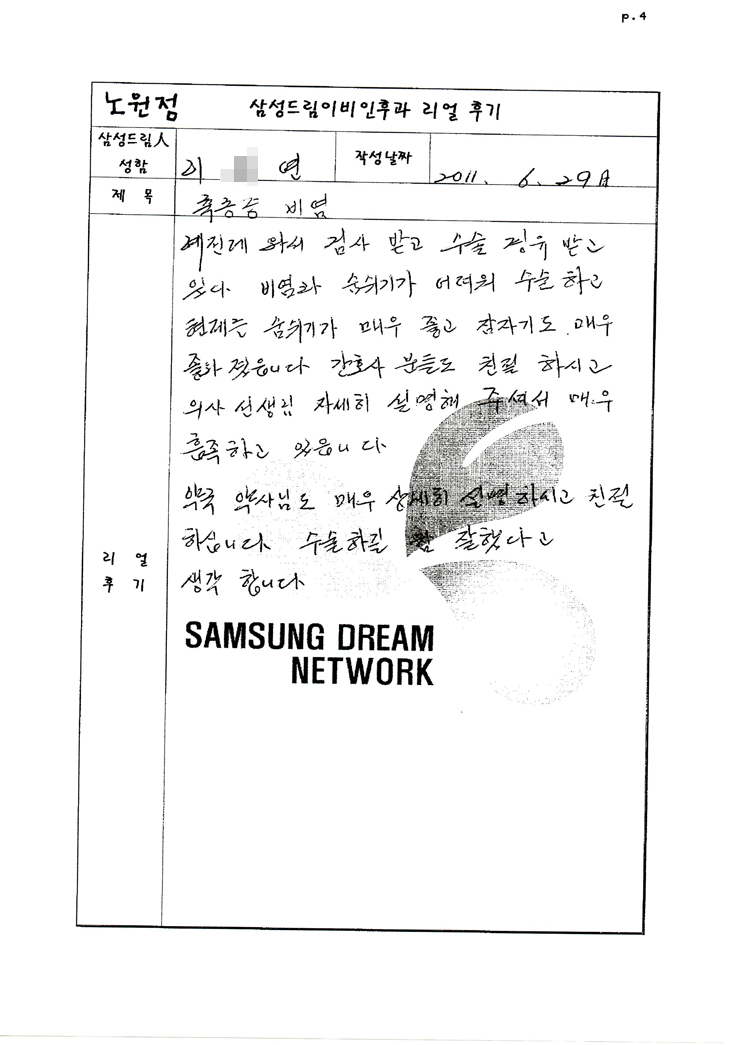 p.4
노원점 삼성드림이비인후과 리얼 후기
삼성드림人
성함
연
작성날짜
2011. 6. 29日
제 목
축농증 비염
예전에 와서 검사 받고 수술 권유 받고
있다. 비염과 숨쉬기가 어려워 수술 하고
현재는 숨쉬기가 매우 좋고 잠자기도 매우
좋아 졌읍니다 간호사 분들도 친절 하시고
의사 선생님 자세히 설명해 주셔서 매우
흡족하고 있읍니다
약국 약사님도 매우 상세히 설명하시고 친절
하십니다. 수술하길 참 잘했다고
생각 합니다
리 얼
후 기
SAMSUNG DREAM
NETWORK